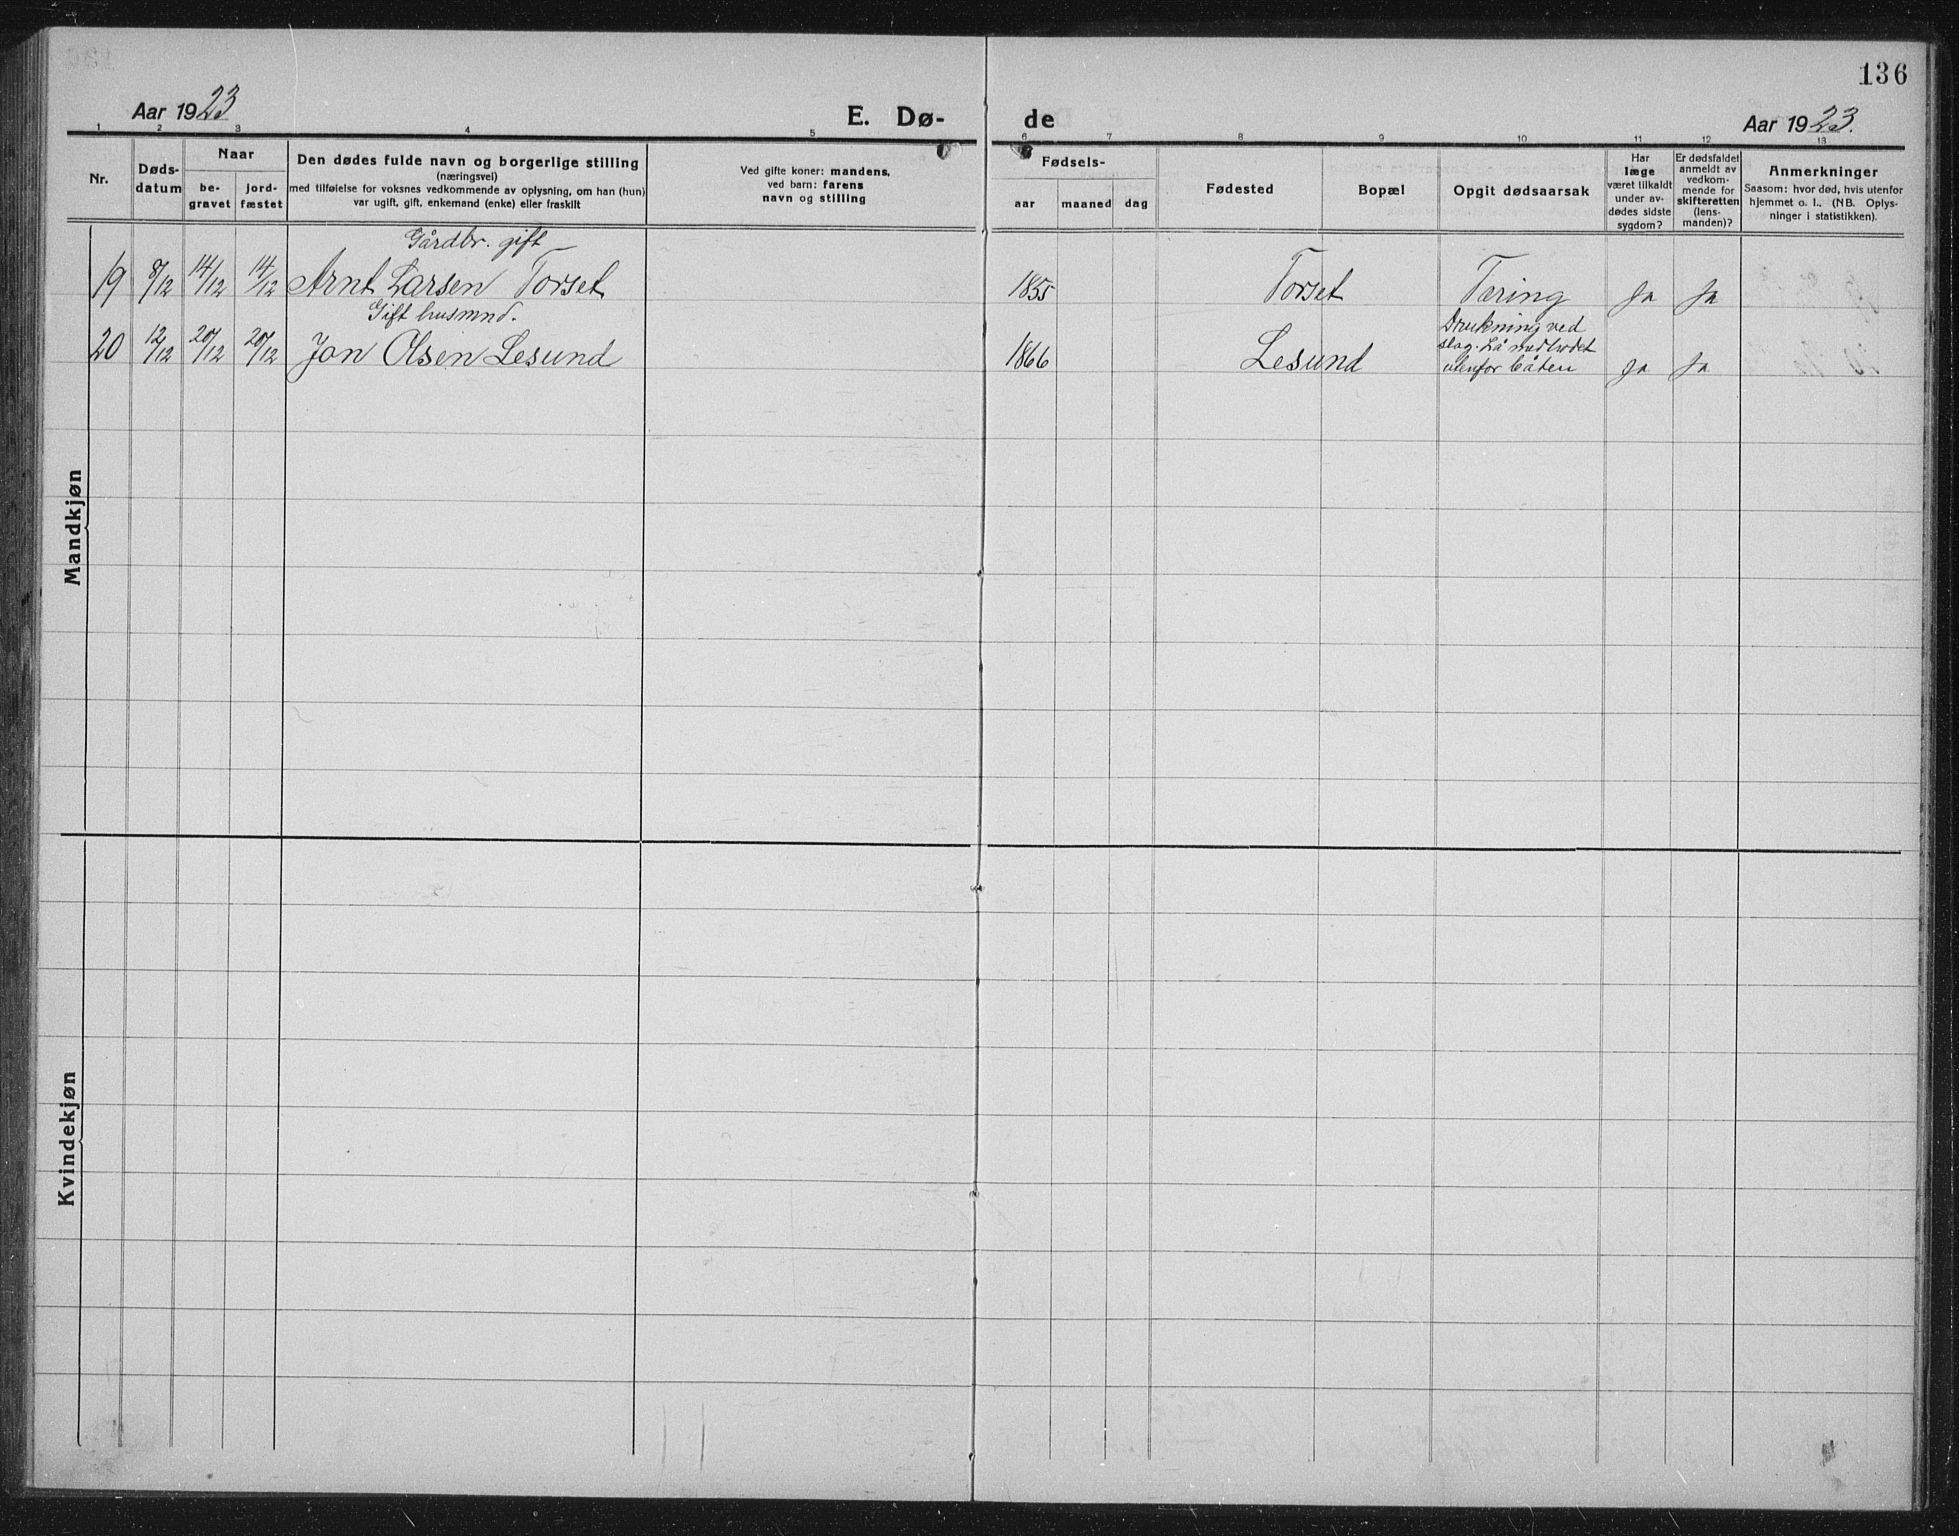 136
Aar 1923
E. Dø-
de
Aar 1923.
1 2 3 4 5 6 7 8 9 10 11 12 13
Nr.
Døds-
datum
Naar
be-
gravet
jord-
fæstet
Den dødes fulde navn og borgerlige stilling
(næringsvei)
med tilføielse for voksnes vedkommende av oplysning, om han (hun)
var ugift, gift, enkemand (enke) eller fraskilt
Ved gifte koner: mandens,
ved barn: farens
navn og stilling
Fødsels-
aar
maaned
dag
Fødested
Bopæl
Opgit dødsaarsak
Har
læge
været tilkaldt
under av-
dødes sidste
sygdom?
Er dødsfaldet
anmeldt av
vedkom-
mende for
skifteretten
(lens-
manden)?
Anmerkninger
Saasom: hvor død, hvis utenfor
hjemmet o. l., (NB. Oplys-
ninger i statistikken).
Mandkjøn
Gårdbr. gift
19 8/12 14/12 14/12 Arnt Larsen Torset 1855 Torset Tæring Ja Ja
Gift husmnd.
Drukning ved
20 12/12 20/12 20/12 Jon Olsen Lesund 1866 Lesund slag. Lå med hodet Ja Ja
utenfor båten
Kvindekjøn